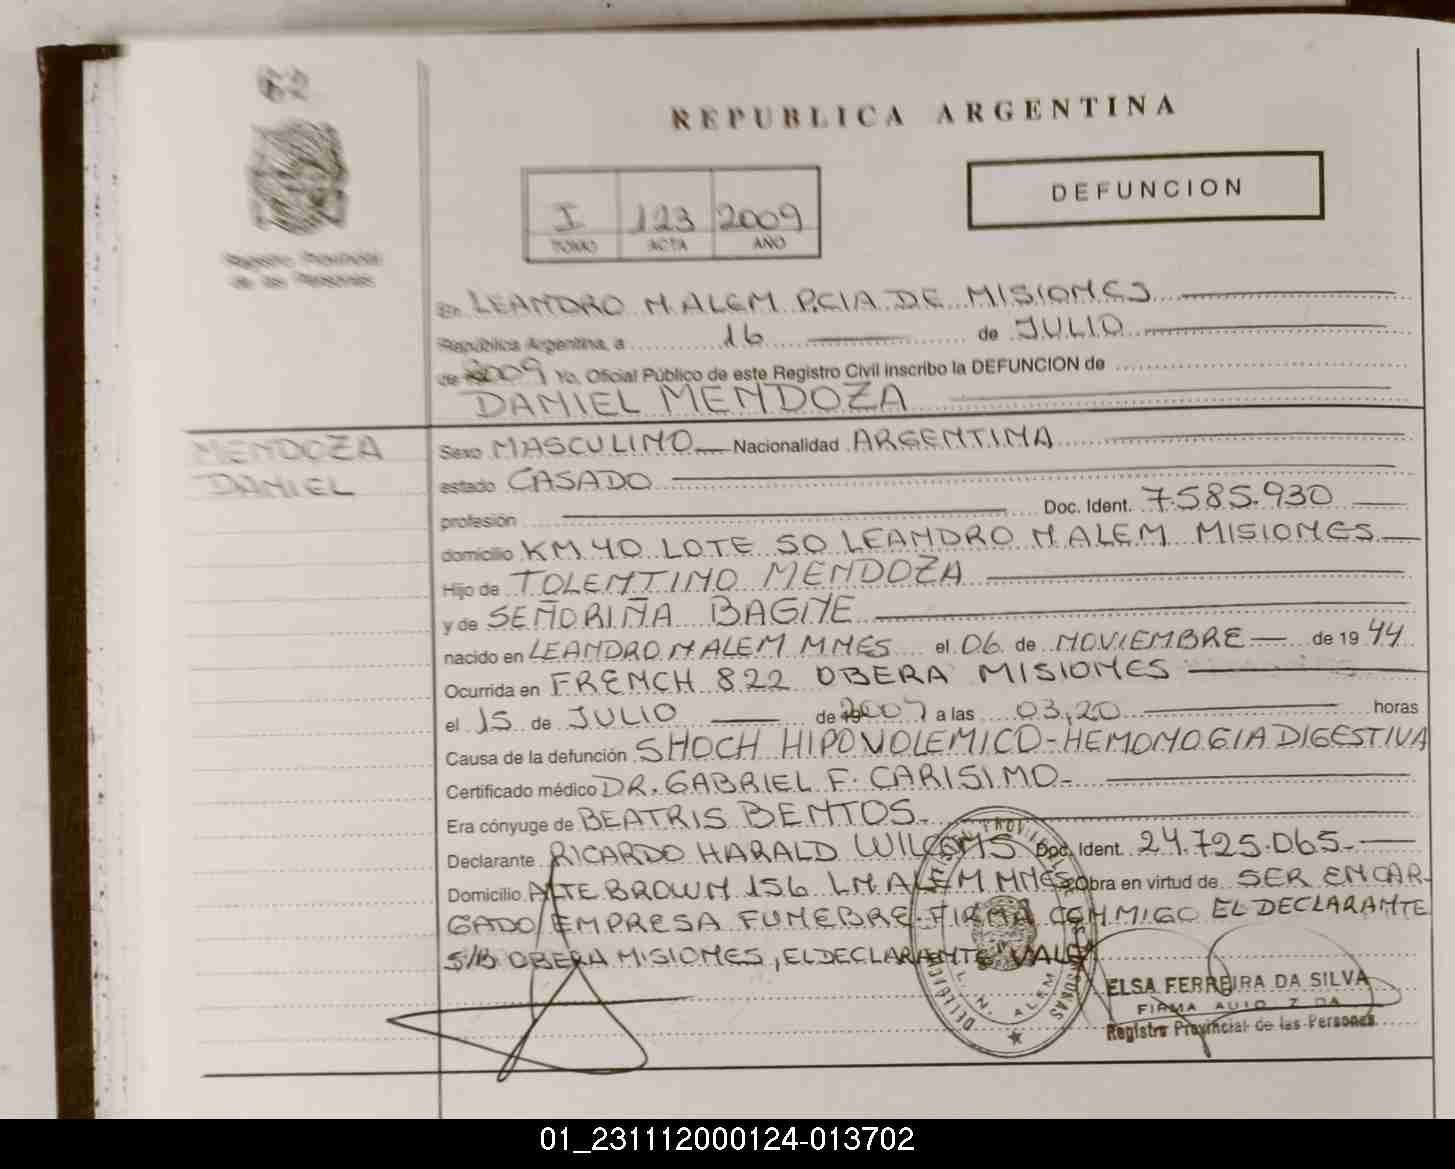 62
REPUBLICA ARGENTINA
I 123 2009
TOMO ACTA AÑO
DEFUNCION
Registro Provincial
de las Personas
En LEANDRO N ALEM PCIA DE MISIONES
República Argentina, a 16 de JULIO
de 2009 Yo, Oficial Público de este Registro Civil inscribo la DEFUNCION de
DANIEL MENDOZA
MENDOZA
DANIEL
Sexo MASCULINO Nacionalidad ARGENTINA
estado CASADO
profesión Doc. Ident. 7.585.930
domicilio KM 40 LOTE 50 LEANDRO N ALEM MISIONES
Hijo de TOLENTINO MENDOZA
y de SEÑORIÑA BAGNE
nacido en LEANDRO N ALEM MNES el 06 de NOVIEMBRE de 1944
Ocurrida en FRENCH 822 OBERA MISIONES
el 15 de JULIO de 2009 a las 03,20 horas
Causa de la defunción SHOCH HIPOVOLEMICO-HEMOMOGIA DIGESTIVA
Certificado médico DR. GABRIEL F. CARISIMO-
Era cónyuge de BEATRIS BENTOS-
Declarante RICARDO HARALD Doc. Ident. 24.725.065-
Domicilio ALTE BROWN 156 LN ALEM MNES Obra en virtud de SER ENCAR-
GADO EMPRESA FUNEBRE-FIRMA CONMIGO EL DECLARANTE
S/B OBERA MISIONES, EL DECLARANTE "VALE"
L. N. ALEM
ELSA FERREIRA DA SILVA
Registro Provincial de las Personas
01_231112000124-013702